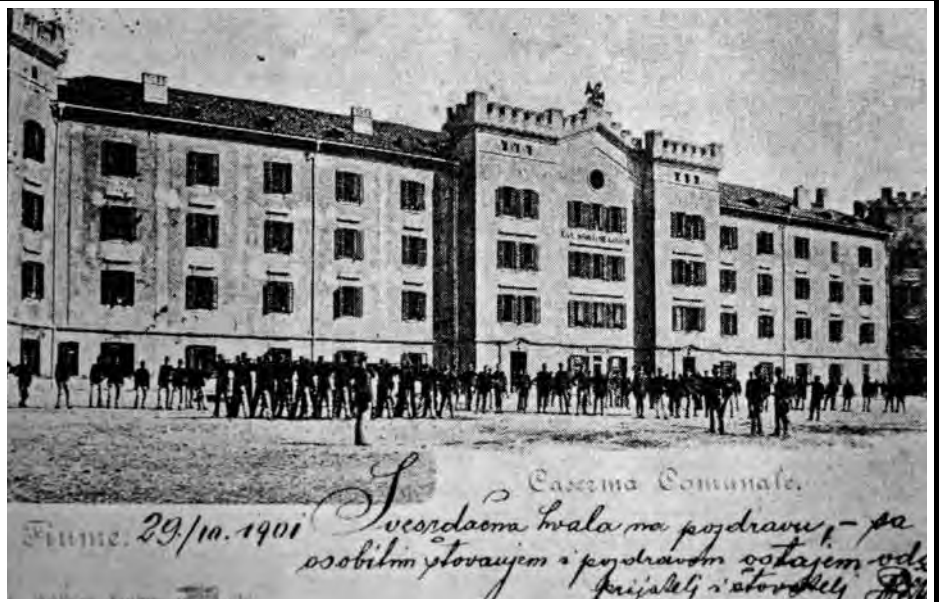 Caserma Comunale.
Fiume. 29./10. 1901 Svesrdačna hvala na pozdravu, – sa
osobitim štovanjem i pozdravom ostajem
prijatelj i štovatelj